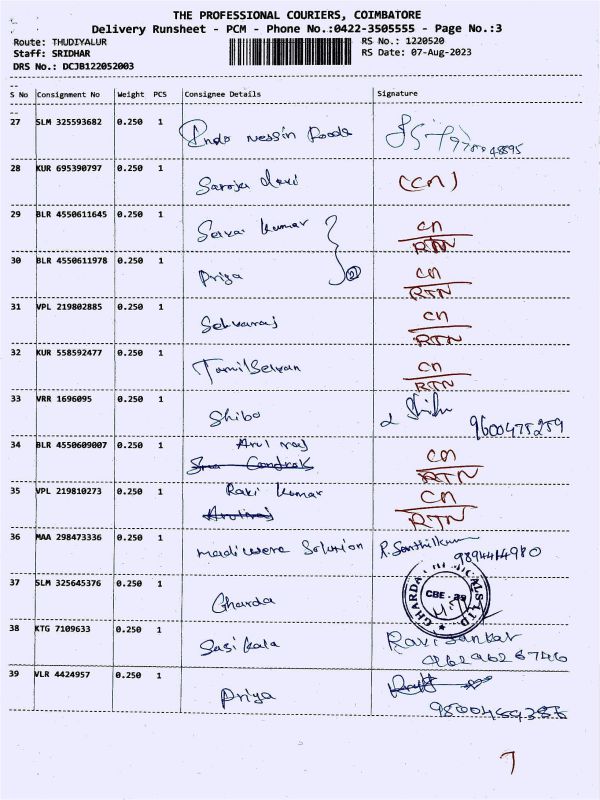 THE PROFESSIONAL COURIERS, COIMBATORE
Delivery Runsheet - PCM - Phone No.:0422-3505555 - Page No.:3
Route: THUDIYALUR RS No.: 1220520
Staff: SRIDHAR RS Date: 07-Aug-2023
DRS No.: DCJB122052003
S No Consignment No Weight PCS Consignee Details Signature
27 SLM 325593682 0.250 1 Indo Foods
28 KUR 695390797 0.250 1 Saroja devi (CN)
29 BLR 4550611645 0.250 1 Selva kumar CN
RTN
30 BLR 4550611978 0.250 1 Priya CN
RTN
31 VPL 219802885 0.250 1 Selvaraj CN
RTN
32 KUR 558592477 0.250 1 TamilSelvan CN
RTN
33 VRR 1696095 0.250 1 Shibo 9600475289
34 BLR 4550609007 0.250 1 Arul raj CN
RTN
35 VPL 219810273 0.250 1 Ravi kumar CN
RTN
36 MAA 298473336 0.250 1 Solution R. Senthilkum
9894414980
37 SLM 325645376 0.250 1 Gharda GHARDA CHEMICALS LTD CBE - 29
38 KTG 7109633 0.250 1 Sasikala Ravi Sankar
9629628746
39 VLR 4424957 0.250 1 Priya
7